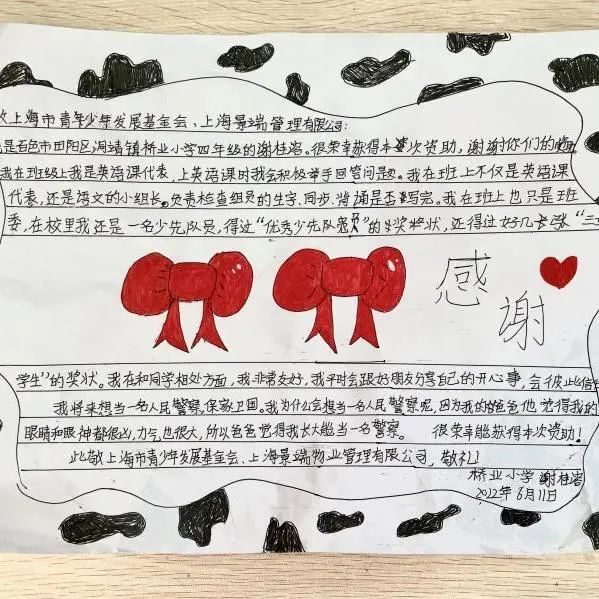 致上海市青年少年发展基金会、上海景端管理有限公司:
是百色市田阳区洞靖镇桥业小学四年级的谢桂洛。很荣幸获得本次资助，谢谢你们的
我在班级上我是英语课代表，上英语课时我会积极举手回答问题。我在班上不仅是英语课
代表，还是语文的小组长。负责检查组员的生字、同步、背诵是否写完。我在班上也只是班
委，在校里我还是一名少先队员，得过“优秀少先队员”的奖状，还得过好几张“三
感谢
学生”的奖状。我在和同学相处方面，我非常友好，我平时会跟好朋友分享自己的开心事，会彼此
我将来想当一名人民警察，保家卫国。我为什么会想当一名人民警察呢，因为我的爸爸他觉得我的
眼睛和眼神都很凶，力气也很大，所以爸爸觉得我长大能当一名警察。 很荣幸能获得本次资助！
此敬上海市青少年发展基金会、上海景端物业管理有限公司，敬礼！
桥业小学 谢桂洛
2022年6月11日